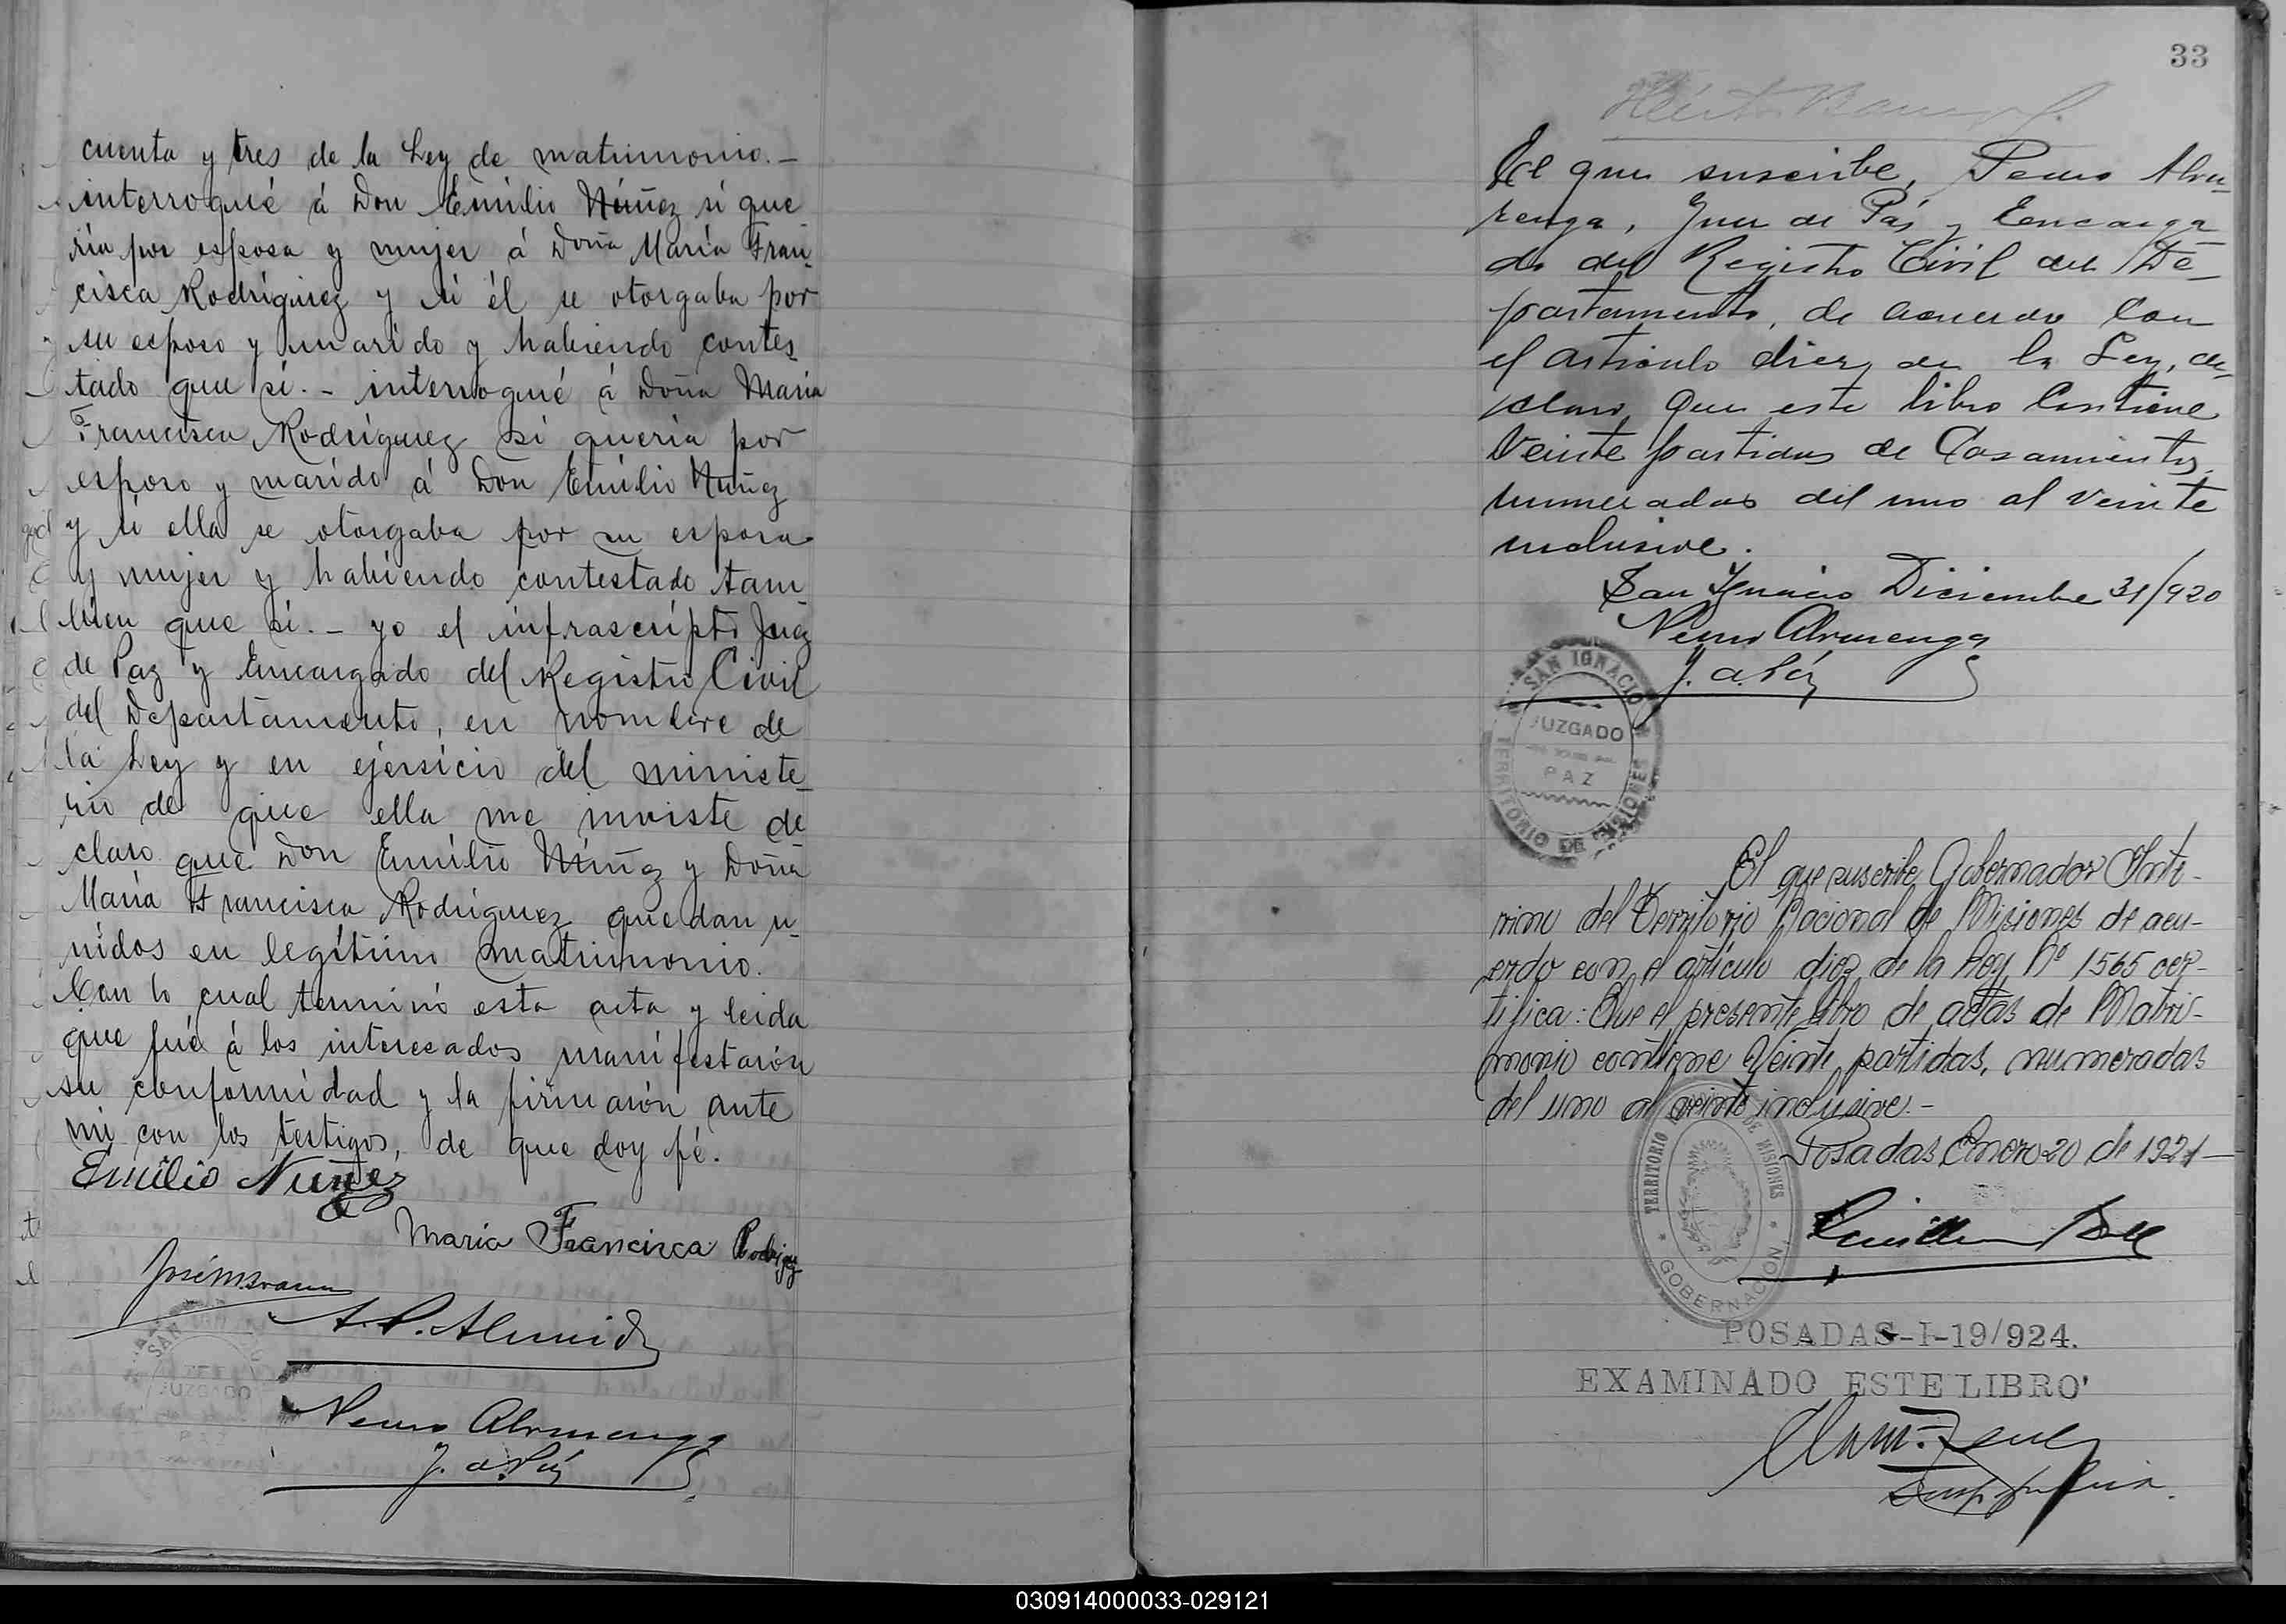 cuenta y tres de la Ley de matrimonio.-
interrogué á Don Emilio Núñez si que
ria por esposa y mujer á Doña María Fran
cisca Rodríguez y si él se otorgaba por
su esposo y marido y habiendo contes
tado que si.- interrogué á Doña María
Francisca Rodríguez si quería por
esposo y marido á Don Emilio Nuñez
y si ella se otorgaba por su esposa
y mujer y habiendo contestado tam
bien que si.- yo el infrascripto Juez
de Paz y Encargado del Registro Civil
del Departamento, en nombre de
la Ley y en ejersicio del ministe
rio de que ella me inviste de
claro que Don Emilio Núñez y Doña
María Francisca Rodríguez quedan u
nidos en legítimo matrimonio.
Con lo cual terminó esta acta y leida
que fué á los interesados manifestarón
su conformidad y la firmarón ante
mi con los testigos, de que doy fé.
Emilio Nuñez
María Francisca Rodriguez
A. P. Almeida
Pedro Alvarenga
J. de Paz
SAN
JUZGADO
PAZ
33
El que suscribe, Pedro Alva-
renga, Juez de Páz y Encarga
do del Registro Civil del De-
partamento, de acuerdo con
el artículo diez de la Ley, de-
claro, que este libro contiene
veinte partidas de Casamientos
numeradas del uno al veinte
inclusive.
San Ignacio Diciembre 31/920
Pedro Alvarenga
J. de Páz
SAN IGNACIO
JUZGADO
PAZ
TERRITORIO DE MISIONES
El que suscribe, Gobernador Inte-
rino del Territorio Nacional de Misiones de acu-
erdo con el artículo diez de la Ley Nº 1565 cer-
tifica: Que el presente libro de actas de Matri-
monio contiene Veinte partidas, numeradas
del uno al veinte inclusive.-
Posadas Enero 20 de 1921-
TERRITORIO DE MISIONES
GOBERNACION
POSADAS-I-19/924.
EXAMINADO ESTE LIBRO
030914000033-029121